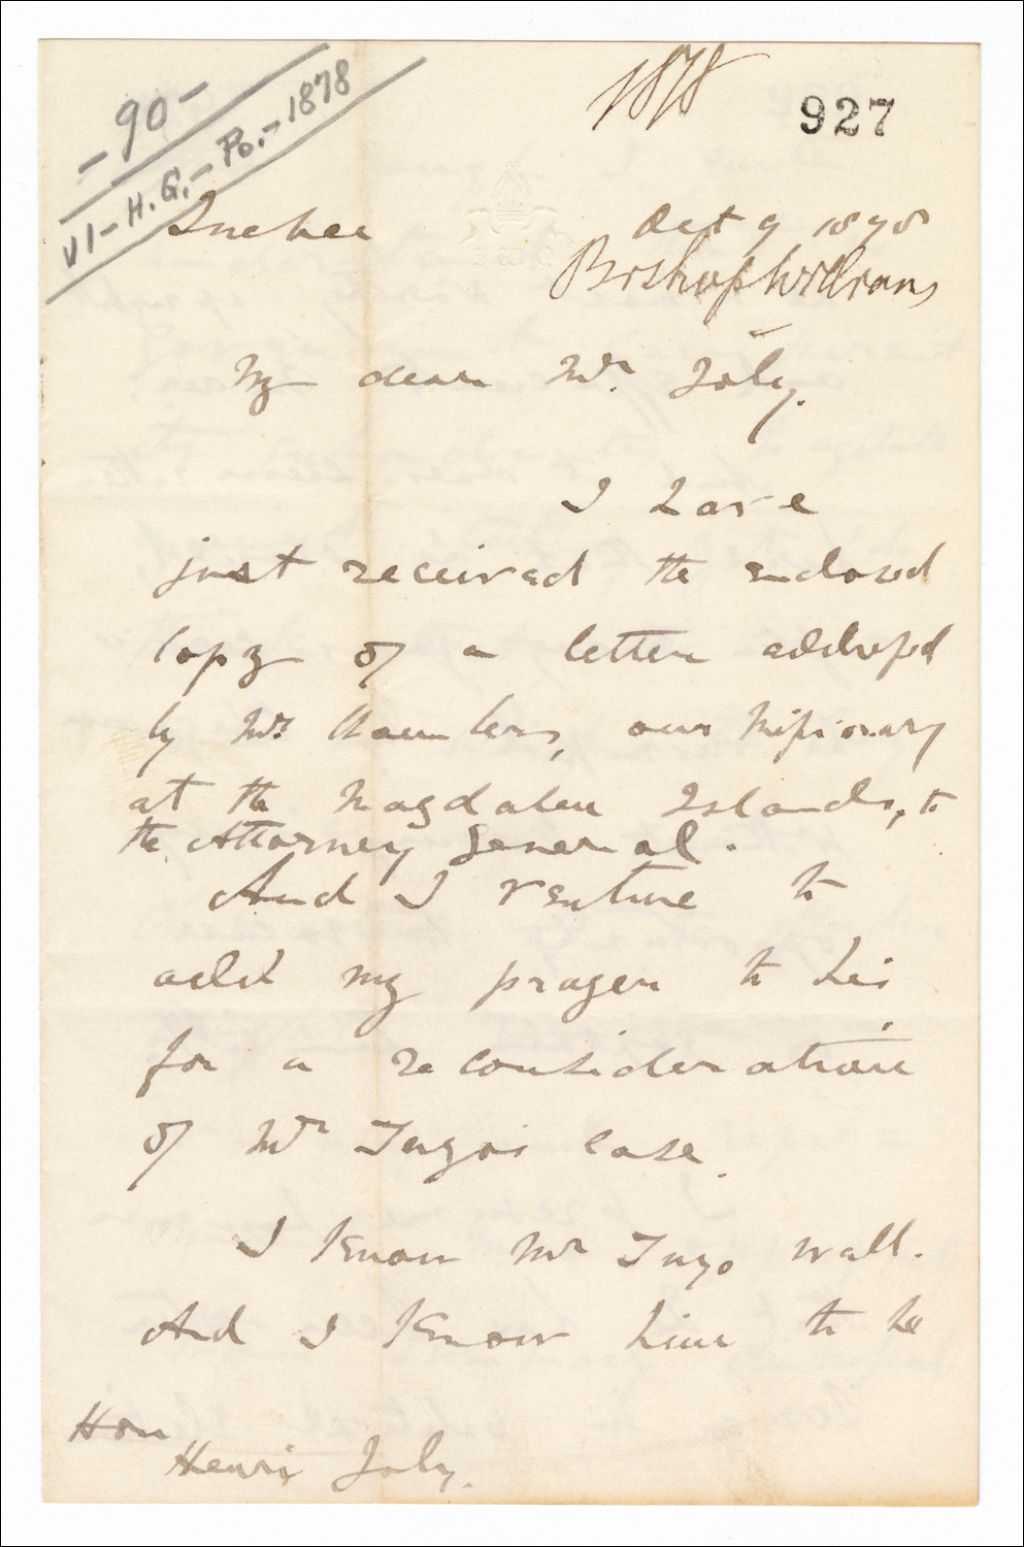 - 90 -
VI - H. G. - Po. - 1878
1878
927
Quebec Oct 9 1878
Bishop Williams
My dear Mr. Joly.
I have
just received the enclosed
copy of a letter addressed
by Mr. Chambers, our Missionary
at the Magdalen Islands, to
the Attorney General.
And I venture to
add my prayer to his
for a reconsideration
of Mr case.
I know Mr well.
And I know him to be
Hon
Henri Joly.